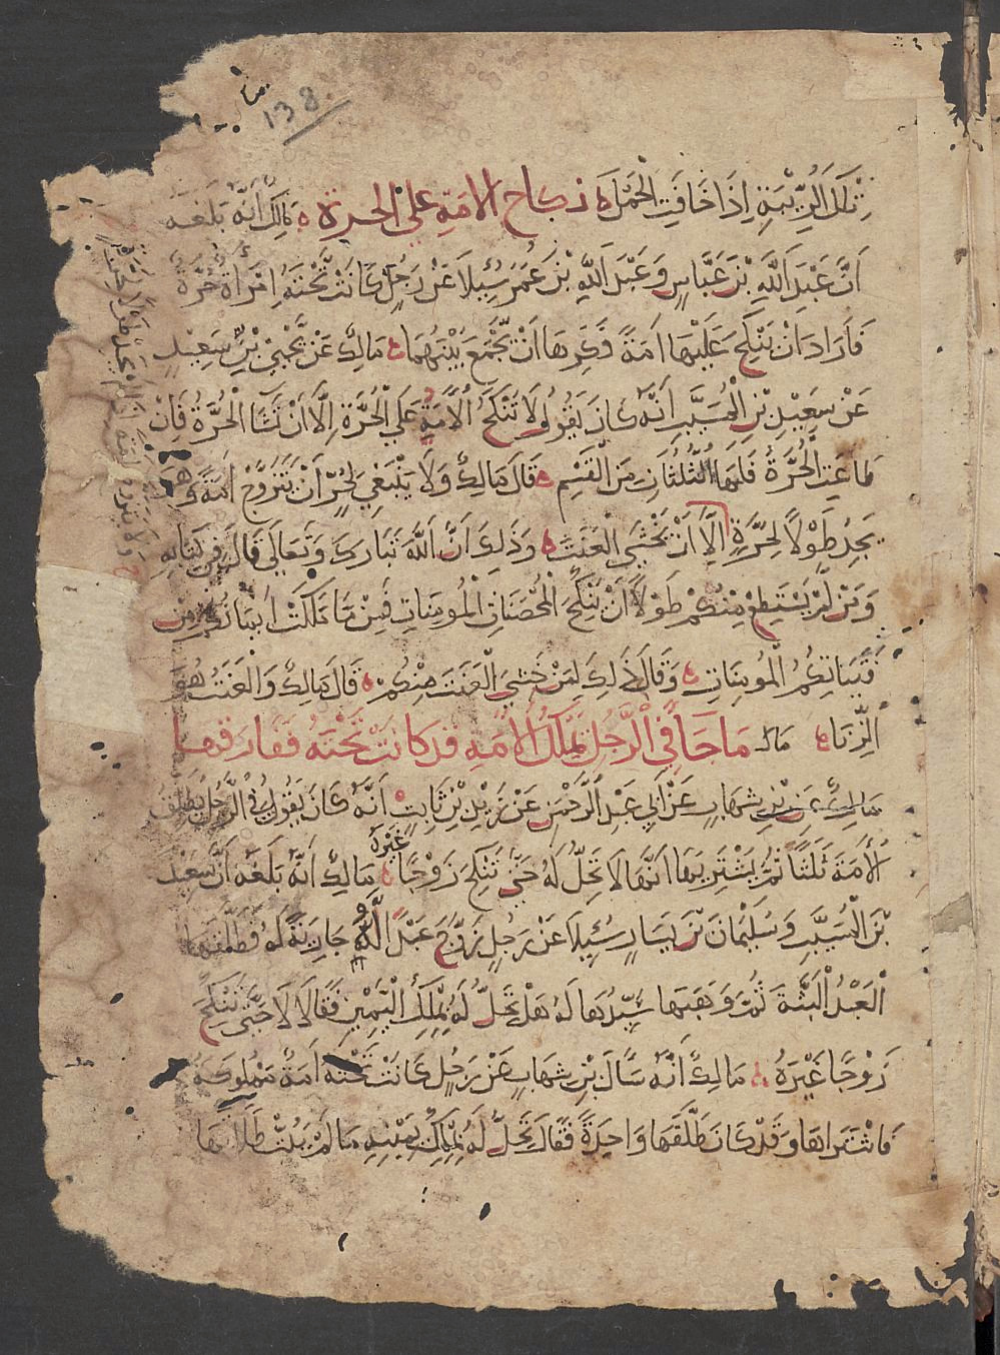 138
بتلك الريبة إذا خافت الحمل ه نكاح الامة على الحرة ه مالك أنه بلغه
أن عبد الله بن عباس وعبد الله بن عمر سئيلا عن رجل كانت تحته امرأة حرة
فأراد ان ينكح عليها امة فكرها ان يجمع بينهما ه مالك عن يحيى بن سعيد
عن سعيد بن المسيب أنه كان يقول لا تنكح الامة على الحرة الا ان تشا الحرة فان
طاعت الحرة فلها الثلثان من القسم ه قال مالك ولا ينبغي لحر أن يتزوج امة وهو
يجد طولا لحرة الا ان يخشى العنت ه وذلك أن الله تبارك وتعالى قال في كتابه
ومن لم يستطع منكم طولا ان ينكح المحصنات المومنات فمن ما ملكت ايمانكم من
فتياتكم المومنات ه وقال ذلك لمن خشي العنت منكم ه قال مالك والعنت هو
الزنا ه ماك ما جا في الرجل يملك الامة قد كانت تحته ففارقها
مالك عن بن شهاب عن ابي عبد الرحمن عن زيد بن ثابت أنه كان يقول في الرجل يطلق
الأمة ثلثا ثم يشتريها انها لا تحل له حتى تنكح زوجا غيره ه مالك أنه بلغه أن سعيد
بن المسيب وسليمان بن يسار سئيلا عن رجل زوج عبدا لله جارية له فطلقها
العبد البتة ثم وهبها سيدها له هل تحل له بملك اليمين فقالا لا حتى تنكح
زوجا غيره ه مالك أنه سال بن شهاب عن رجل كانت تحته امة مملوكة
فاشتراها وقد كان طلقها واحدة فقال تحل له بملك يمينه ما لم يبت طلاقها